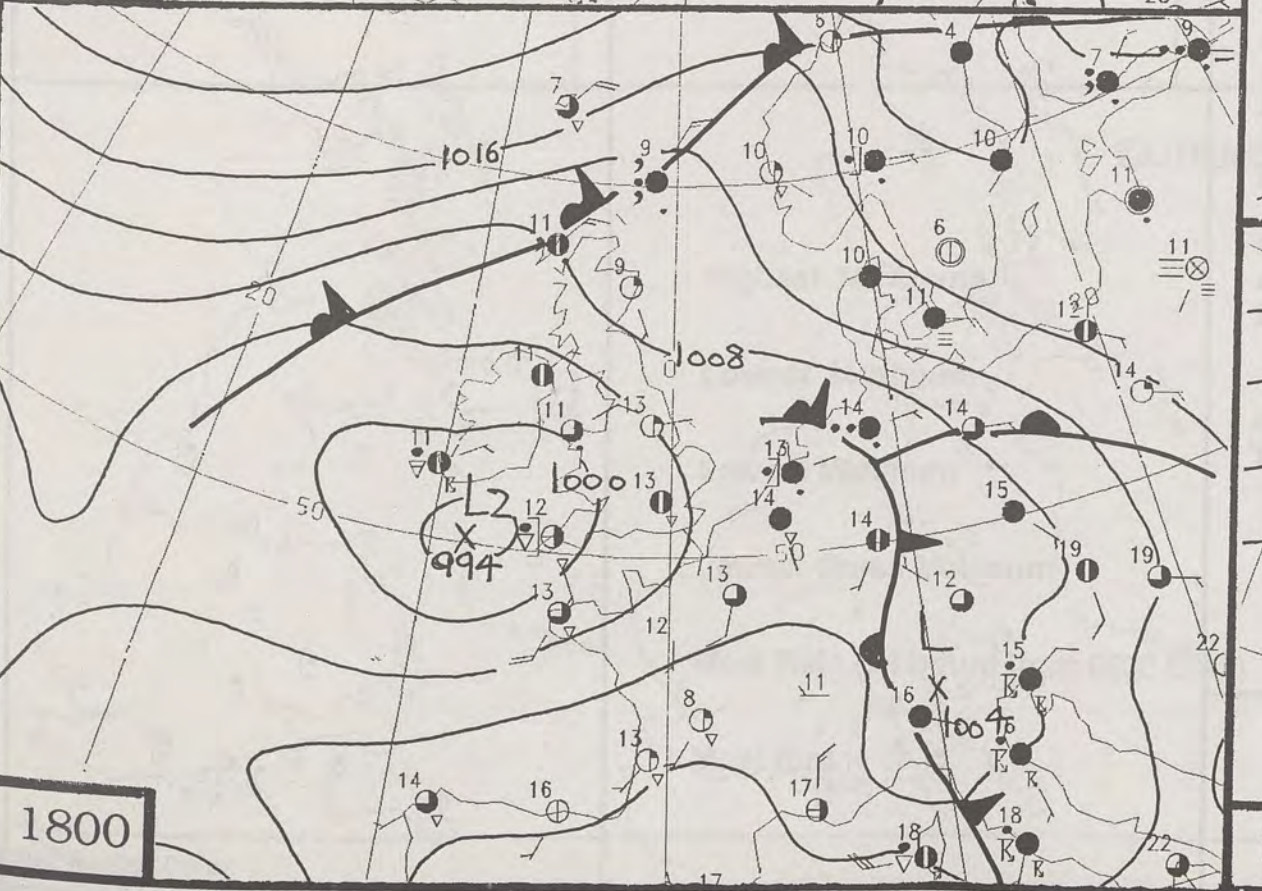 5
4
9
7
7
1016
9
10
10
10
11
11
6
11
9
10
11
20
12
20
1008
0
14
11
11
13
14
14
11
13
L2
1000
13
14
15
50
12
X
994
14
50
19
19
13
13
12
12
L
15
22
X
11
16
1004
8
16
13
14
16
17
18
18
22
17
1800